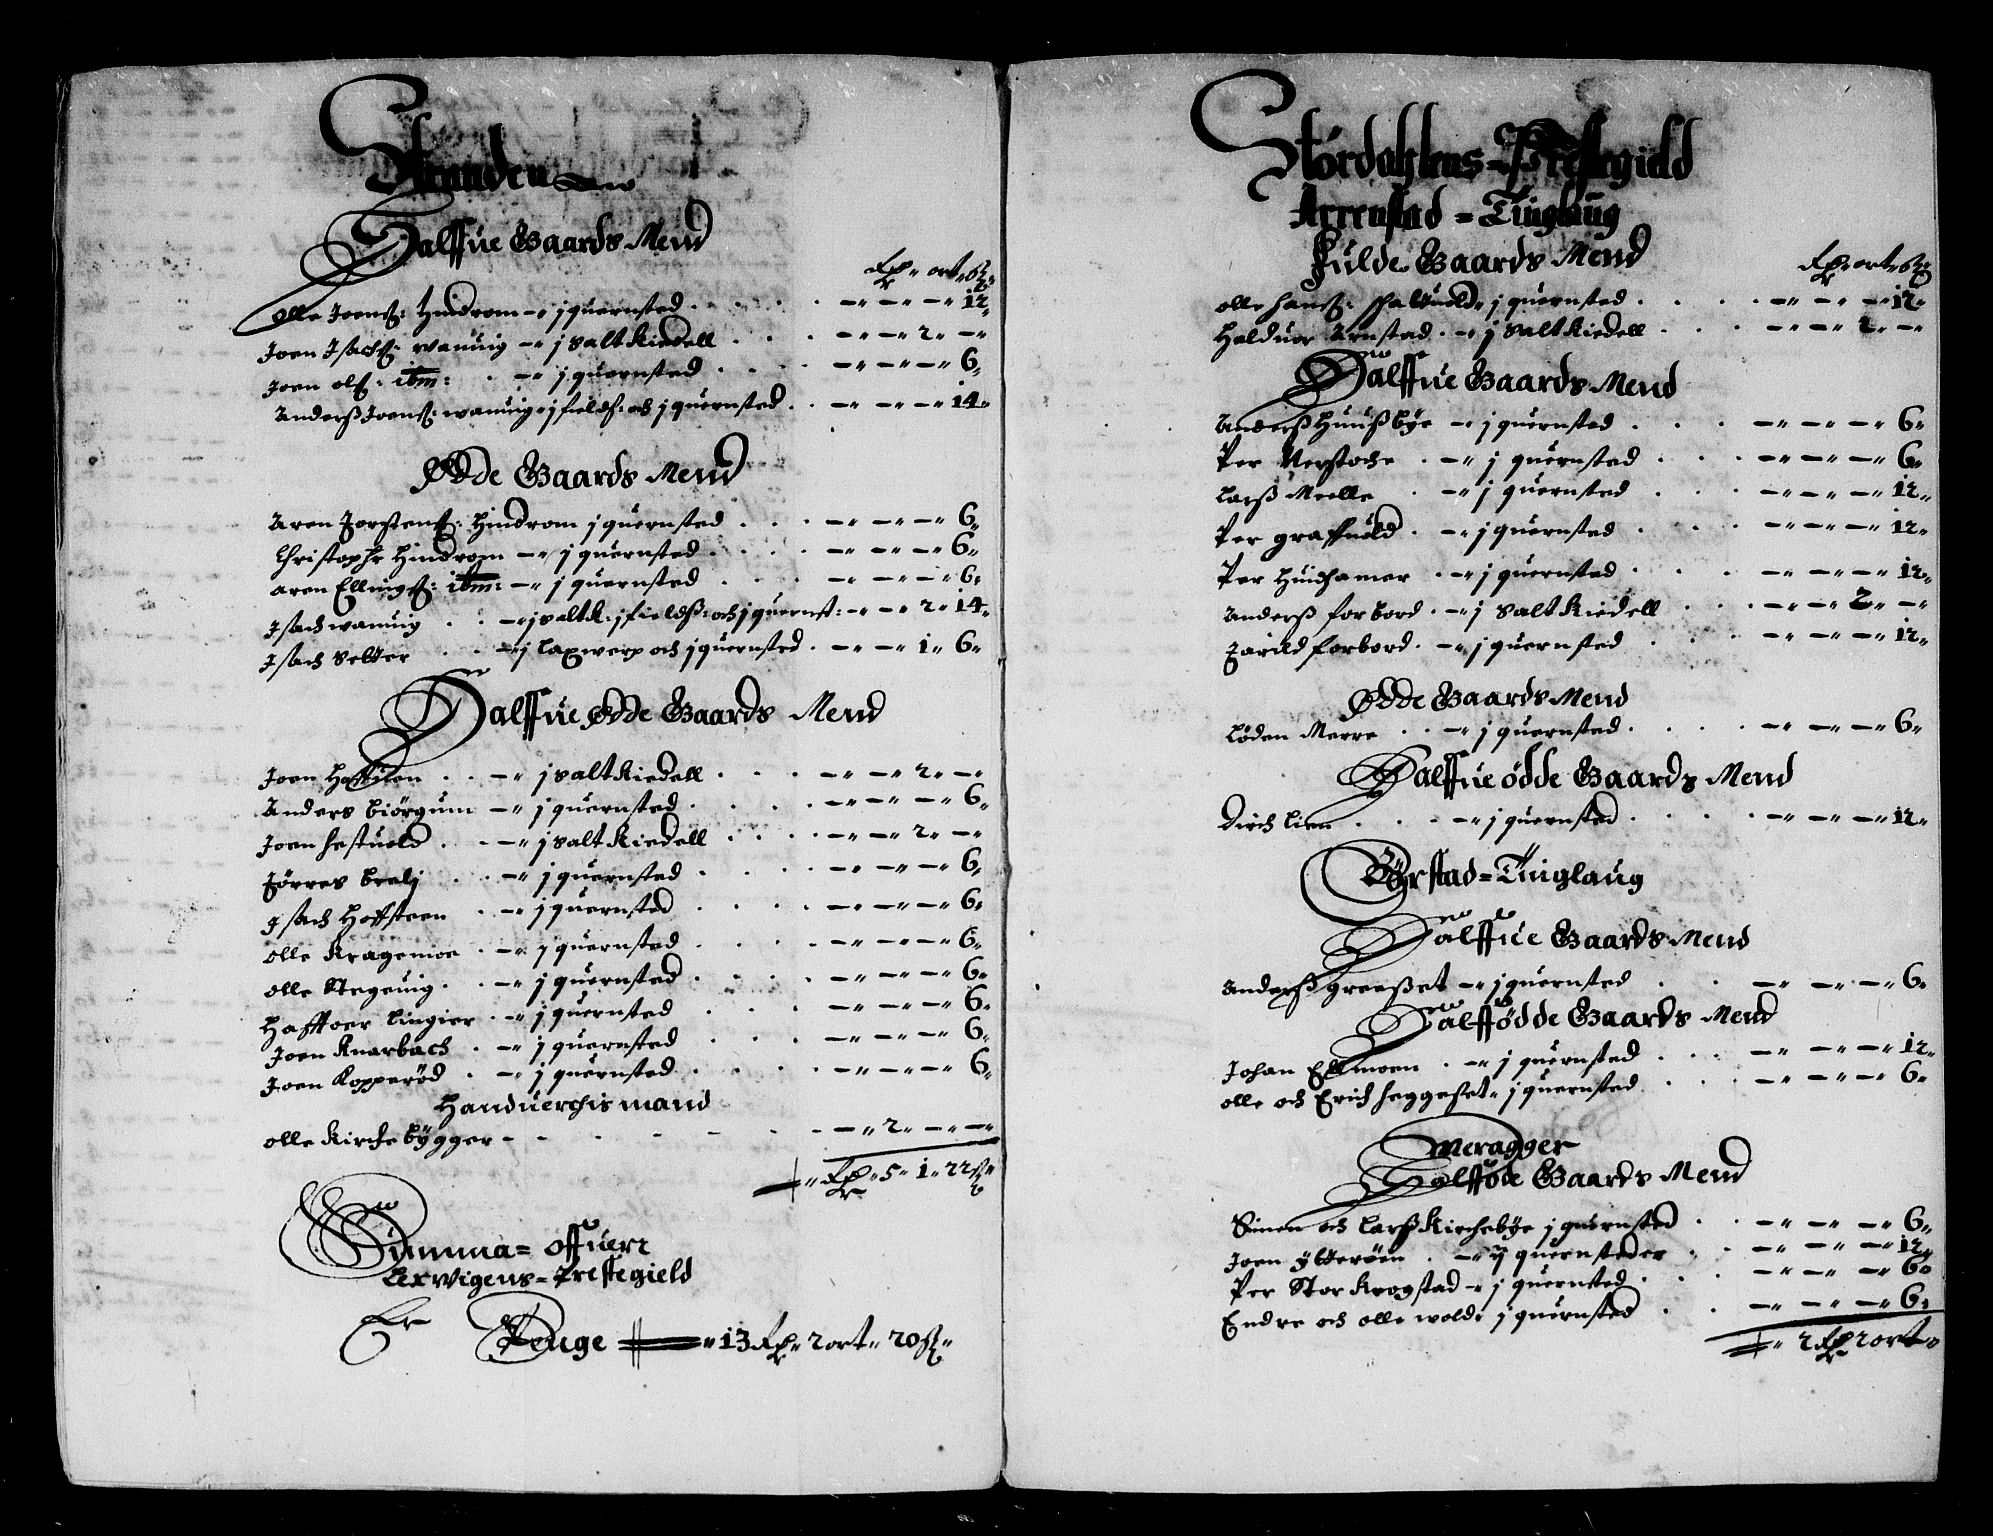 Strnnden
Halffue Gaards Mend
Rdr ort ß
Olle Joenß: Hindrom — j quernsted — — — 12
Joen Isachß: wannig — j saltkiedell — — 2 —
Joen olß: itm: — j quernsted — — — 6
Anderß Joenß: wannig j fieldß: och j quernsted — — — 14
Ødde Gaards Mend
Aren Torstenß: Hindrom j quernsted — — — 6
Christopher Hindrom — j quernsted — — — 6
Aren Ellingß: itm: — j quernsted — — — 6
Isach wannig — j saltk: j fieldß: och j quernst: — — 2 14
Isach Setter — j Laxwerp och j quernsted — — 1 6
Halffue Ødde Gaards Mend
Joen Hoffsten — j saltkiedell — — 2 —
Anders Biörgum — j quernsted — — — 6
Joen Hestuold — j saltkiedell — — 2 —
Jörres — j quernsted — — — 6
Isach Hoffsteen — j quernsted — — — 6
Olle Kragemoe — j quernsted — — — 6
Olle Stegenig — j quernsted — — — 6
Hafftoer — j quernsted — — — 6
Joen Knarbach — j quernsted — — — 6
Joen Kopperöd — j quernsted — — — 6
Handuerchismand
Olle Kirchebÿgger — — 2 — —
Rdr 5 1 22 ß
Summa offuer
Lexwigens Prestegield
Er
Penge 13 Rdr 2 ort 20 ß
Stördahlens Prestegield
Arrenstad Tinglaug
Fulde Gaards Mend
Rdr ort ß
Olle Hanß: j quernsted — — — 12
Halduor Arnstad — j saltkiedell — — 2 —
Halffue Gaards Mend
Anderß Huußbÿe — j quernsted — — — 6
Per Werstoche — j quernsted — — — 6
Larß Melle — j quernsted — — — 12
Per Graffuold — j quernsted — — — 12
Per Huidhamer — j quernsted — — — 12
Anderß forbord — j saltkiedell — — 2 —
Jarild forbord — j quernsted — — — 12
Ødde Gaards Mend
Löden Merre — j quernsted — — — 6
Halffue ödde Gaards Mend
Dirch Lien — j quernsted — — — 12
Börstad Tinglaug
Halffue Gaards Mend
Anderß Greeßet — j quernsted — — — 6
Halffödde Gaards Mend
Johan Ellmoen — j quernsted — — — 12
Olle och Erich Heggeset j quernsted — — — 6
Meragger
Halfföde Gaards Mend
Simen och Larß Kirchebÿe j quernsted — — — 6
Joen ÿtteröen — ij quernsteder — — — 12
Per Stor Krogstad — j quernsted — — — 6
Endre och Olle wold j quernsted — — — 6
2 Rdr 2 ort